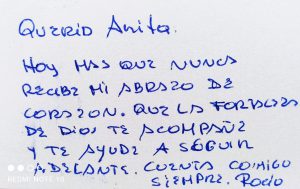 QUERID Anita.
HOY MAS QUE NUNCA
RECIBE MI ABRAZO DE
CORAZON. QUE LA FORTALEZA
DE DIOS TE ACOMPAÑE
Y TE AYUDE A SEGUIR
ADELANTE. CUENTA CONMIGO
SIEMPRE. ROCIO
REDMI NOTE 10